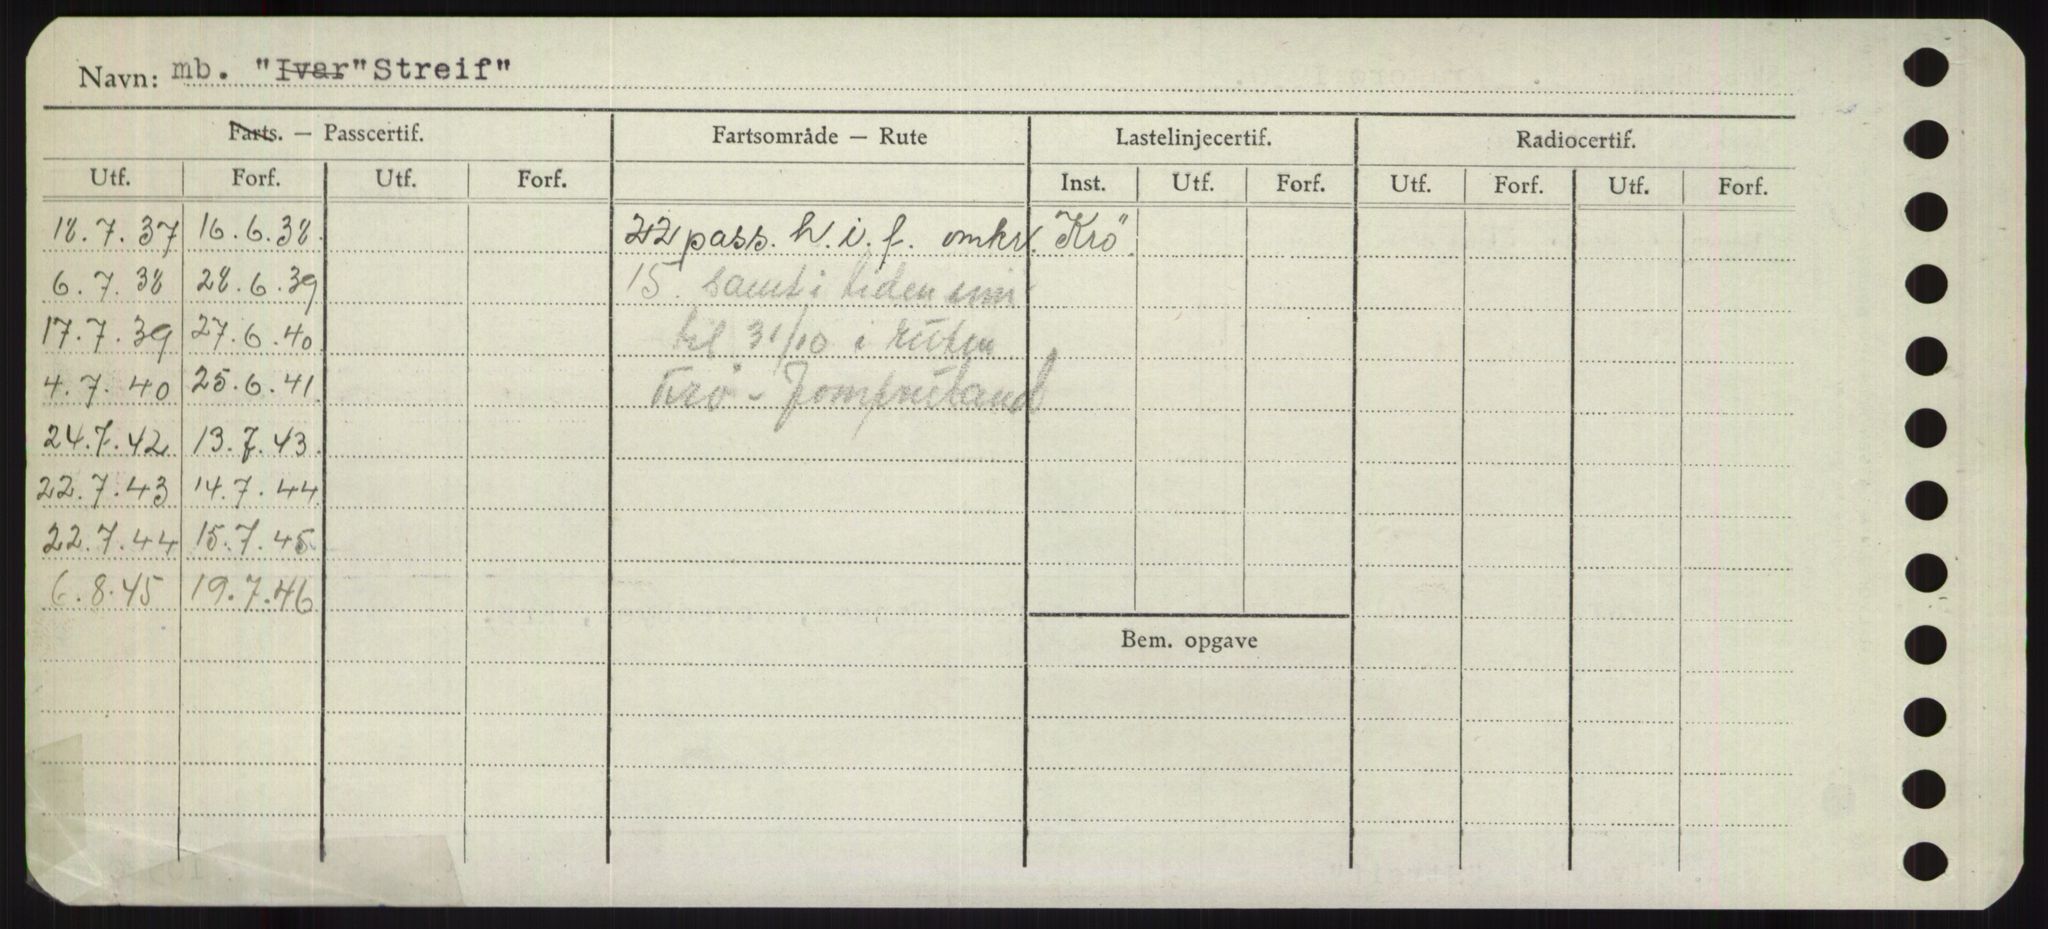 Navn: mb. "Ivar" "Streif"
Farts. — Passcertif. Fartsområde — Rute Lastelinjecertif. Radiocertif.
Utf. Forf. Utf. Forf. Inst. Utf. Forf. Utf. Forf. Utf. Forf.
18.7.37 16.6.38. 22 pass. h.i.f. omkr. "Krö".
6.7.38 28.6.39 15. samt i tiden
17.7.39 27.6.40. til 31/10 i ruten
4.7.40 25.6.41. Krø - Jomfruland
24.7.42 13.7.43.
22.7.43 14.7.44.
22.7.44 15.7.45
6.8.45 19.7.46
Bem. opgave